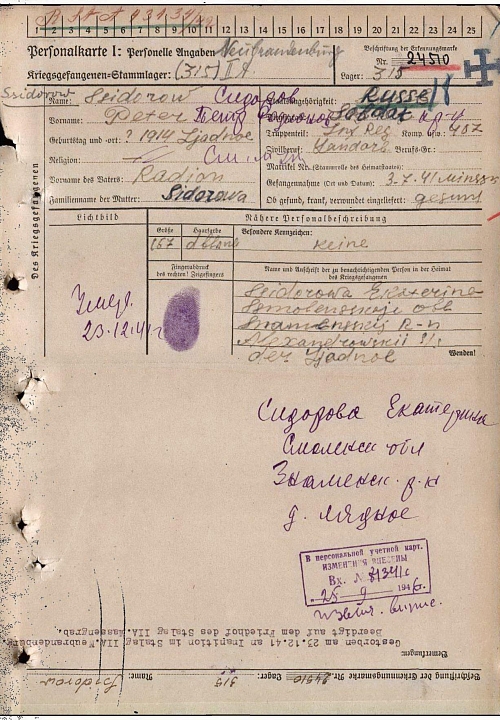 R St A 13134/46
1 2 3 4 5 6 7 8 9 10 11 12 13 14 15 16 17 18 19 20 21 22 23 24 25
Personalkarte I: Personelle Angaben Neubrandenburg
Beschriftung der Erkennungsmarke
Kriegsgefangenen-Stammlager: (315) II A
Nr. 24510
Lager: 315
Ssidorow
Des Kriegsgefangenen
Name: Ssidorow Сидоров
Staatsangehörigkeit: Russe
Vorname: Peter Петр
Dienstgrad: Soldat кр-ц
Geburtstag und -ort: ? 1914 Ljadnoe
Truppenteil: Inf. Reg. Komp. usw.: 467
Religion:
Zivilberuf: Berufs-Gr.:
Matrikel Nr. (Stammrolle des Heimatstaates):
Vorname des Vaters: Radion
Gefangennahme (Ort und Datum): 3.7.41 Minsk
Familienname der Mutter: Sidorowa
Ob gesund, krank, verwundet eingeliefert: gesund
Lichtbild
Nähere Personalbeschreibung
Größe Haarfarbe Besondere Kennzeichen:
167 dblond keine
Fingerabdruck des rechten! Zeigefingers
Name und Anschrift der zu benachrichtigenden Person in der Heimat des Kriegsgefangenen
Ssidorowa Ekaterina
Smolenskaje obl
Snamenskij R-n
Alexandrowskij s/s
der Ljadnoe
Wenden!
Умер
23.12.41г
Сидорова Екатерина
Смоленск обл
Знаменск. р-н
д. Лядное
В персональной учетной карт.
ИЗМЕНЕНИЯ ВНЕСЕНЫ
Вх. № 13134/с
"25" 9 1946г.
Bemerkungen:
Gestorben am 23.12.41 an Inspition in Stalag IIA Neubrandenburg
Beerdigt auf dem Friedhof des Stalag IIA. Massengrab.
Beschriftung der Erkennungsmarke Nr. 24510 Lager: 315 Name: Ssidorow